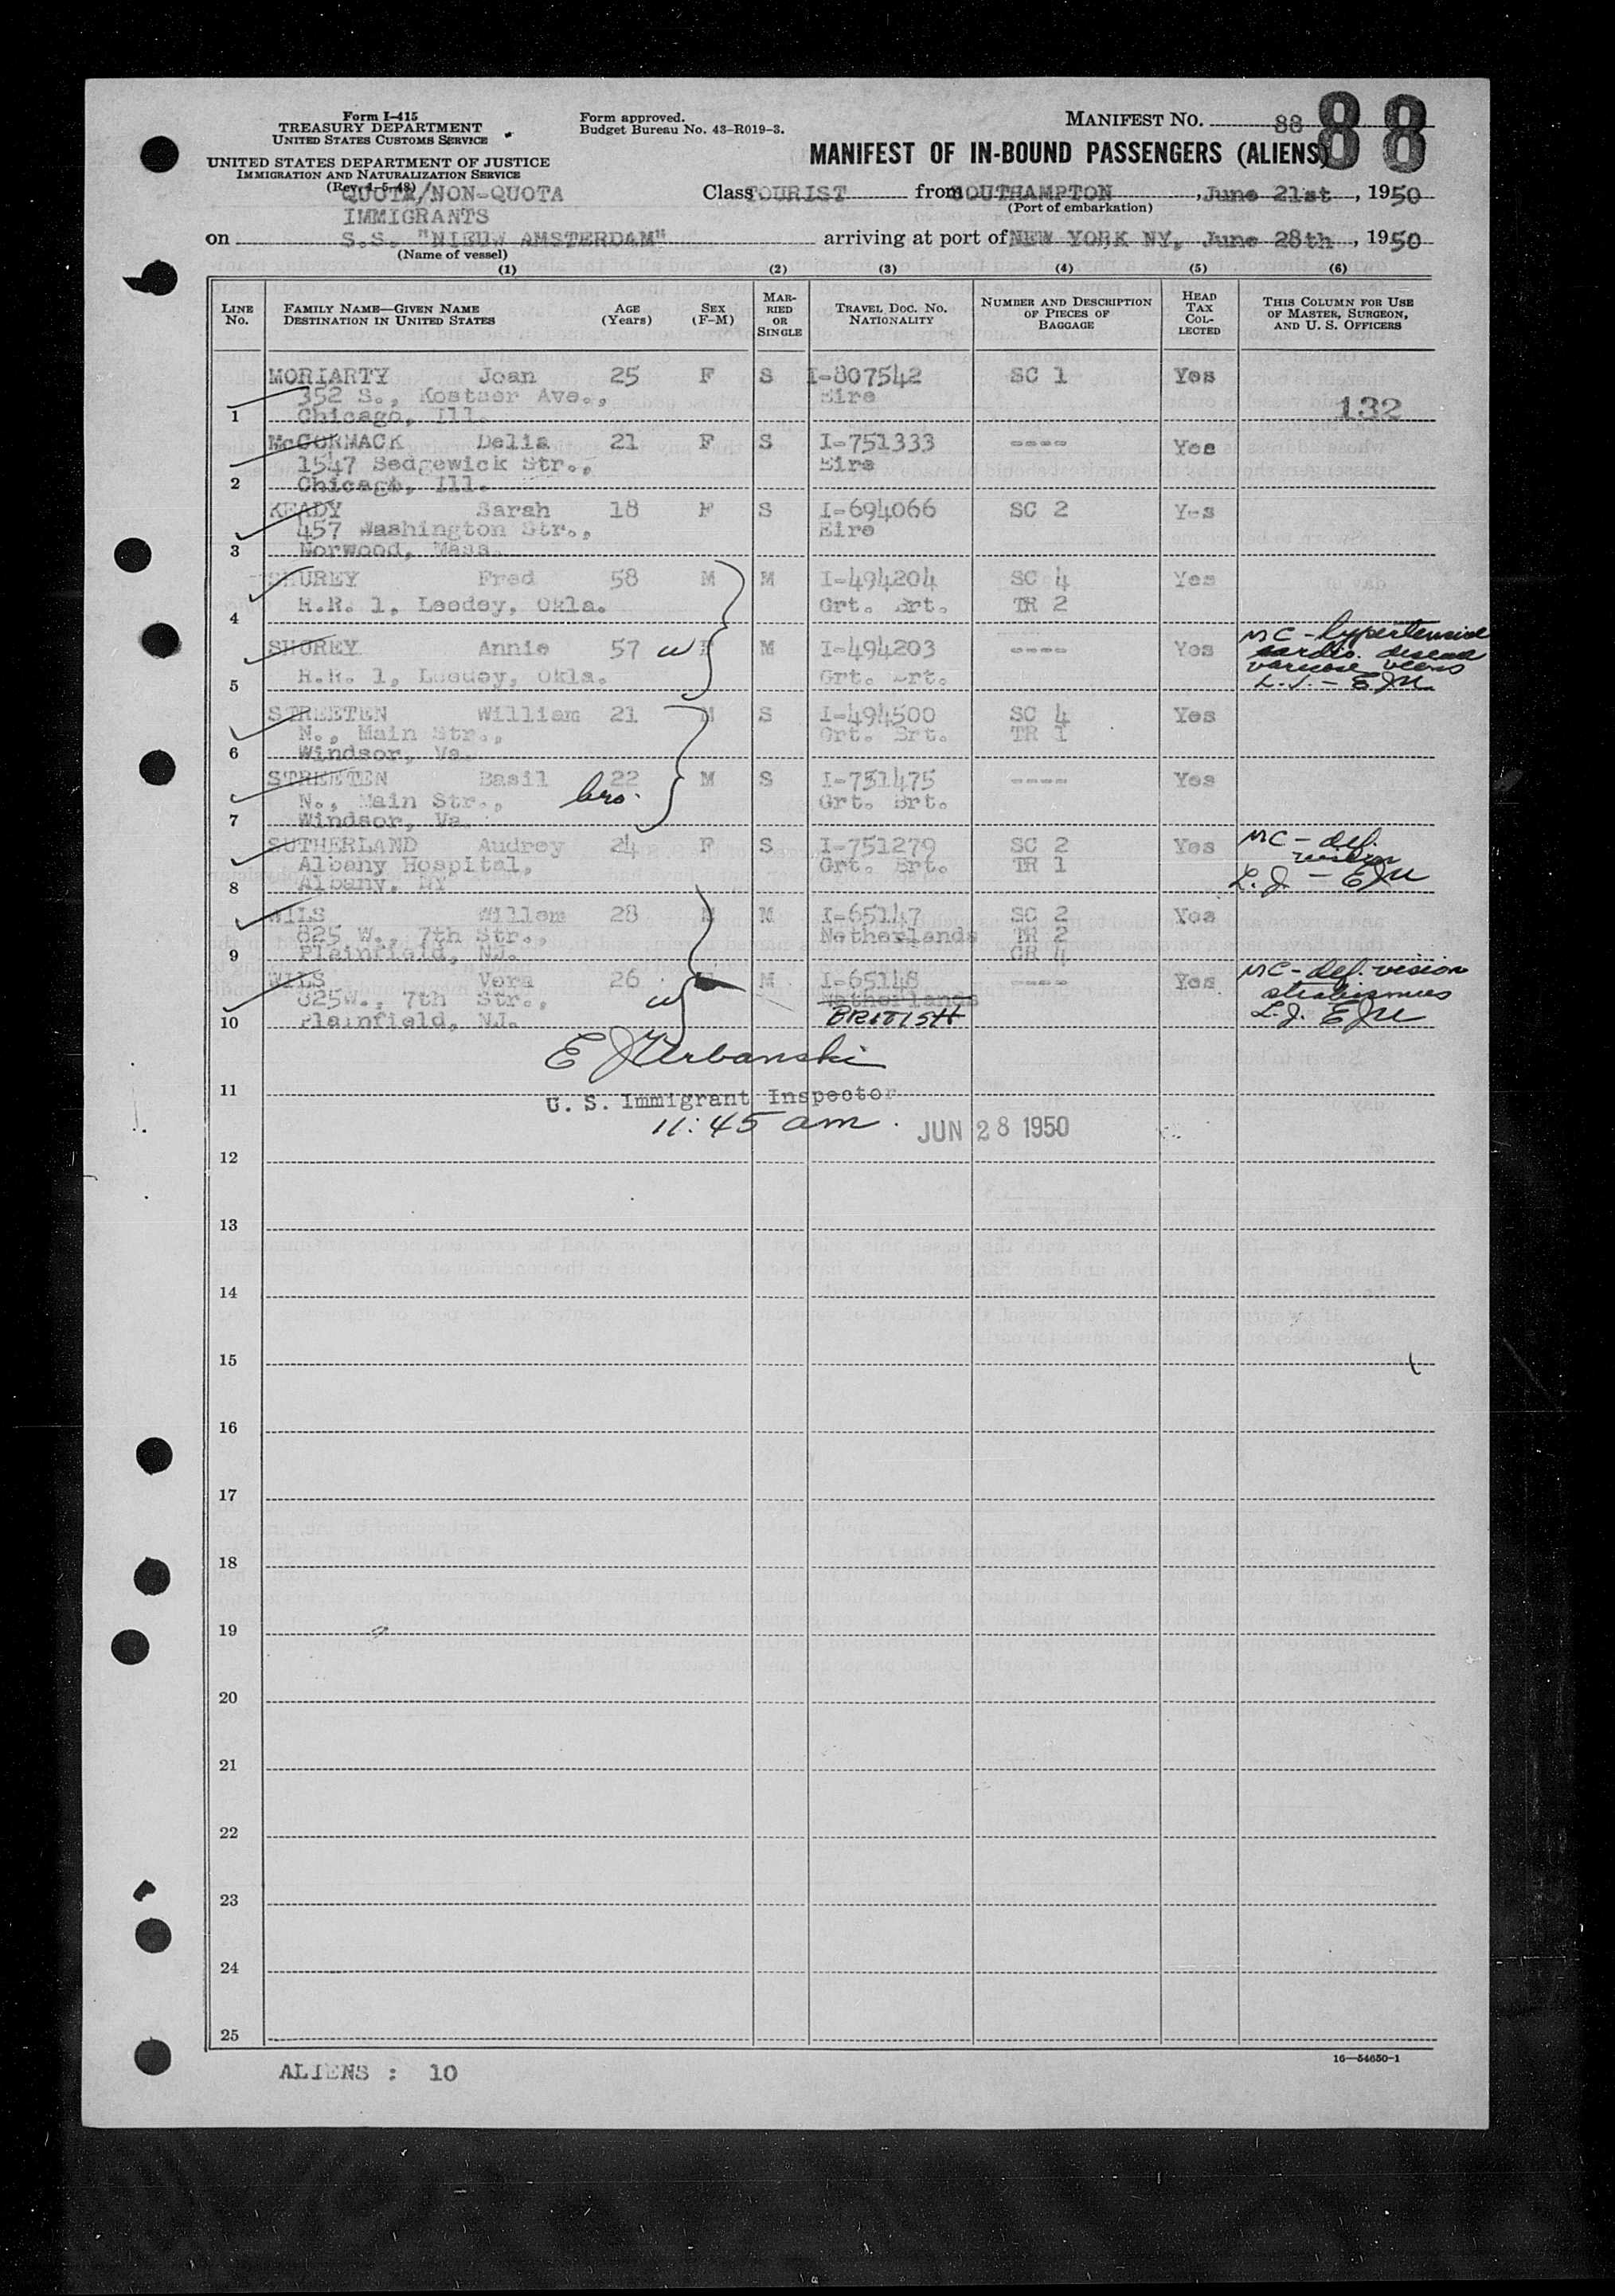 Form I-415
TREASURY DEPARTMENT
UNITED STATES CUSTOMS SERVICE
UNITED STATES DEPARTMENT OF JUSTICE
IMMIGRATION AND NATURALIZATION SERVICE
(Rev. 4-5-48)
Form approved.
Budget Bureau No. 43-R019-3.
MANIFEST NO. 88
88
MANIFEST OF IN-BOUND PASSENGERS (ALIENS)
QUOTA/NON-QUOTA
IMMIGRANTS
Class TOURIST from SOUTHAMPTON, June 21st, 1950
(Port of embarkation)
on S.S. "NIEUW AMSTERDAM" arriving at port of NEW YORK NY, June 28th, 1950
(Name of vessel)
(1) (2) (3) (4) (5) (6)
LINE No. FAMILY NAME—GIVEN NAME DESTINATION IN UNITED STATES AGE (Years) SEX (F-M) MARRIED OR SINGLE TRAVEL DOC. NO. NATIONALITY NUMBER AND DESCRIPTION OF PIECES OF BAGGAGE HEAD TAX COLLECTED THIS COLUMN FOR USE OF MASTER, SURGEON, AND U. S. OFFICERS
MORIARTY Joan 25 F S I-807542 SC 1 Yes
352 S., Kostner Ave., Eire
1 Chicago, Ill. 132
McCORMACK Delia 21 F S I-751333 ---- Yes
1547 Sedgewick Str., Eire
2 Chicago, Ill.
KEADY Sarah 18 F S I-694066 SC 2 Yes
457 Washington Str., Eire
3 Norwood, Mass.
SHUREY Fred 58 M M I-494204 SC 4 Yes
R.R. 1, Leedey, Okla. Grt. Brt. TR 2
4
SHUREY Annie 57 w F M I-494203 ---- Yes MC - hypertensive
cardio. disease
R.R. 1, Leedey, Okla. Grt. Brt. varicose veins
5 L.J. - EJU
STREETEN William 21 M S I-494500 SC 4 Yes
N., Main Str., Grt. Brt. TR 1
6 Windsor, Va.
STREETEN Basil 22 M S I-751475 ---- Yes
N., Main Str., bro. Grt. Brt.
7 Windsor, Va.
SUTHERLAND Audrey 24 F S I-751279 SC 2 Yes MC - def.
Albany Hospital, Grt. Brt. TR 1 vision
8 Albany, NY L.J. - EJU
WILS Willem 28 M M I-65147 SC 2 Yes
825 W., 7th Str., Netherlands TR 2
9 Plainfield, NJ. CR 4
WILS Vera 26 w F M I-65148 ---- Yes MC - def. vision
825W., 7th Str., Netherlands strabismus
10 Plainfield, NJ. BRITISH L.J. EJU
E J Urbanski
11
U. S. Immigrant Inspector
11:45 am. JUN 28 1950
12
13
14
15
16
17
18
19
20
21
22
23
24
25
16—54650-1
ALIENS : 10